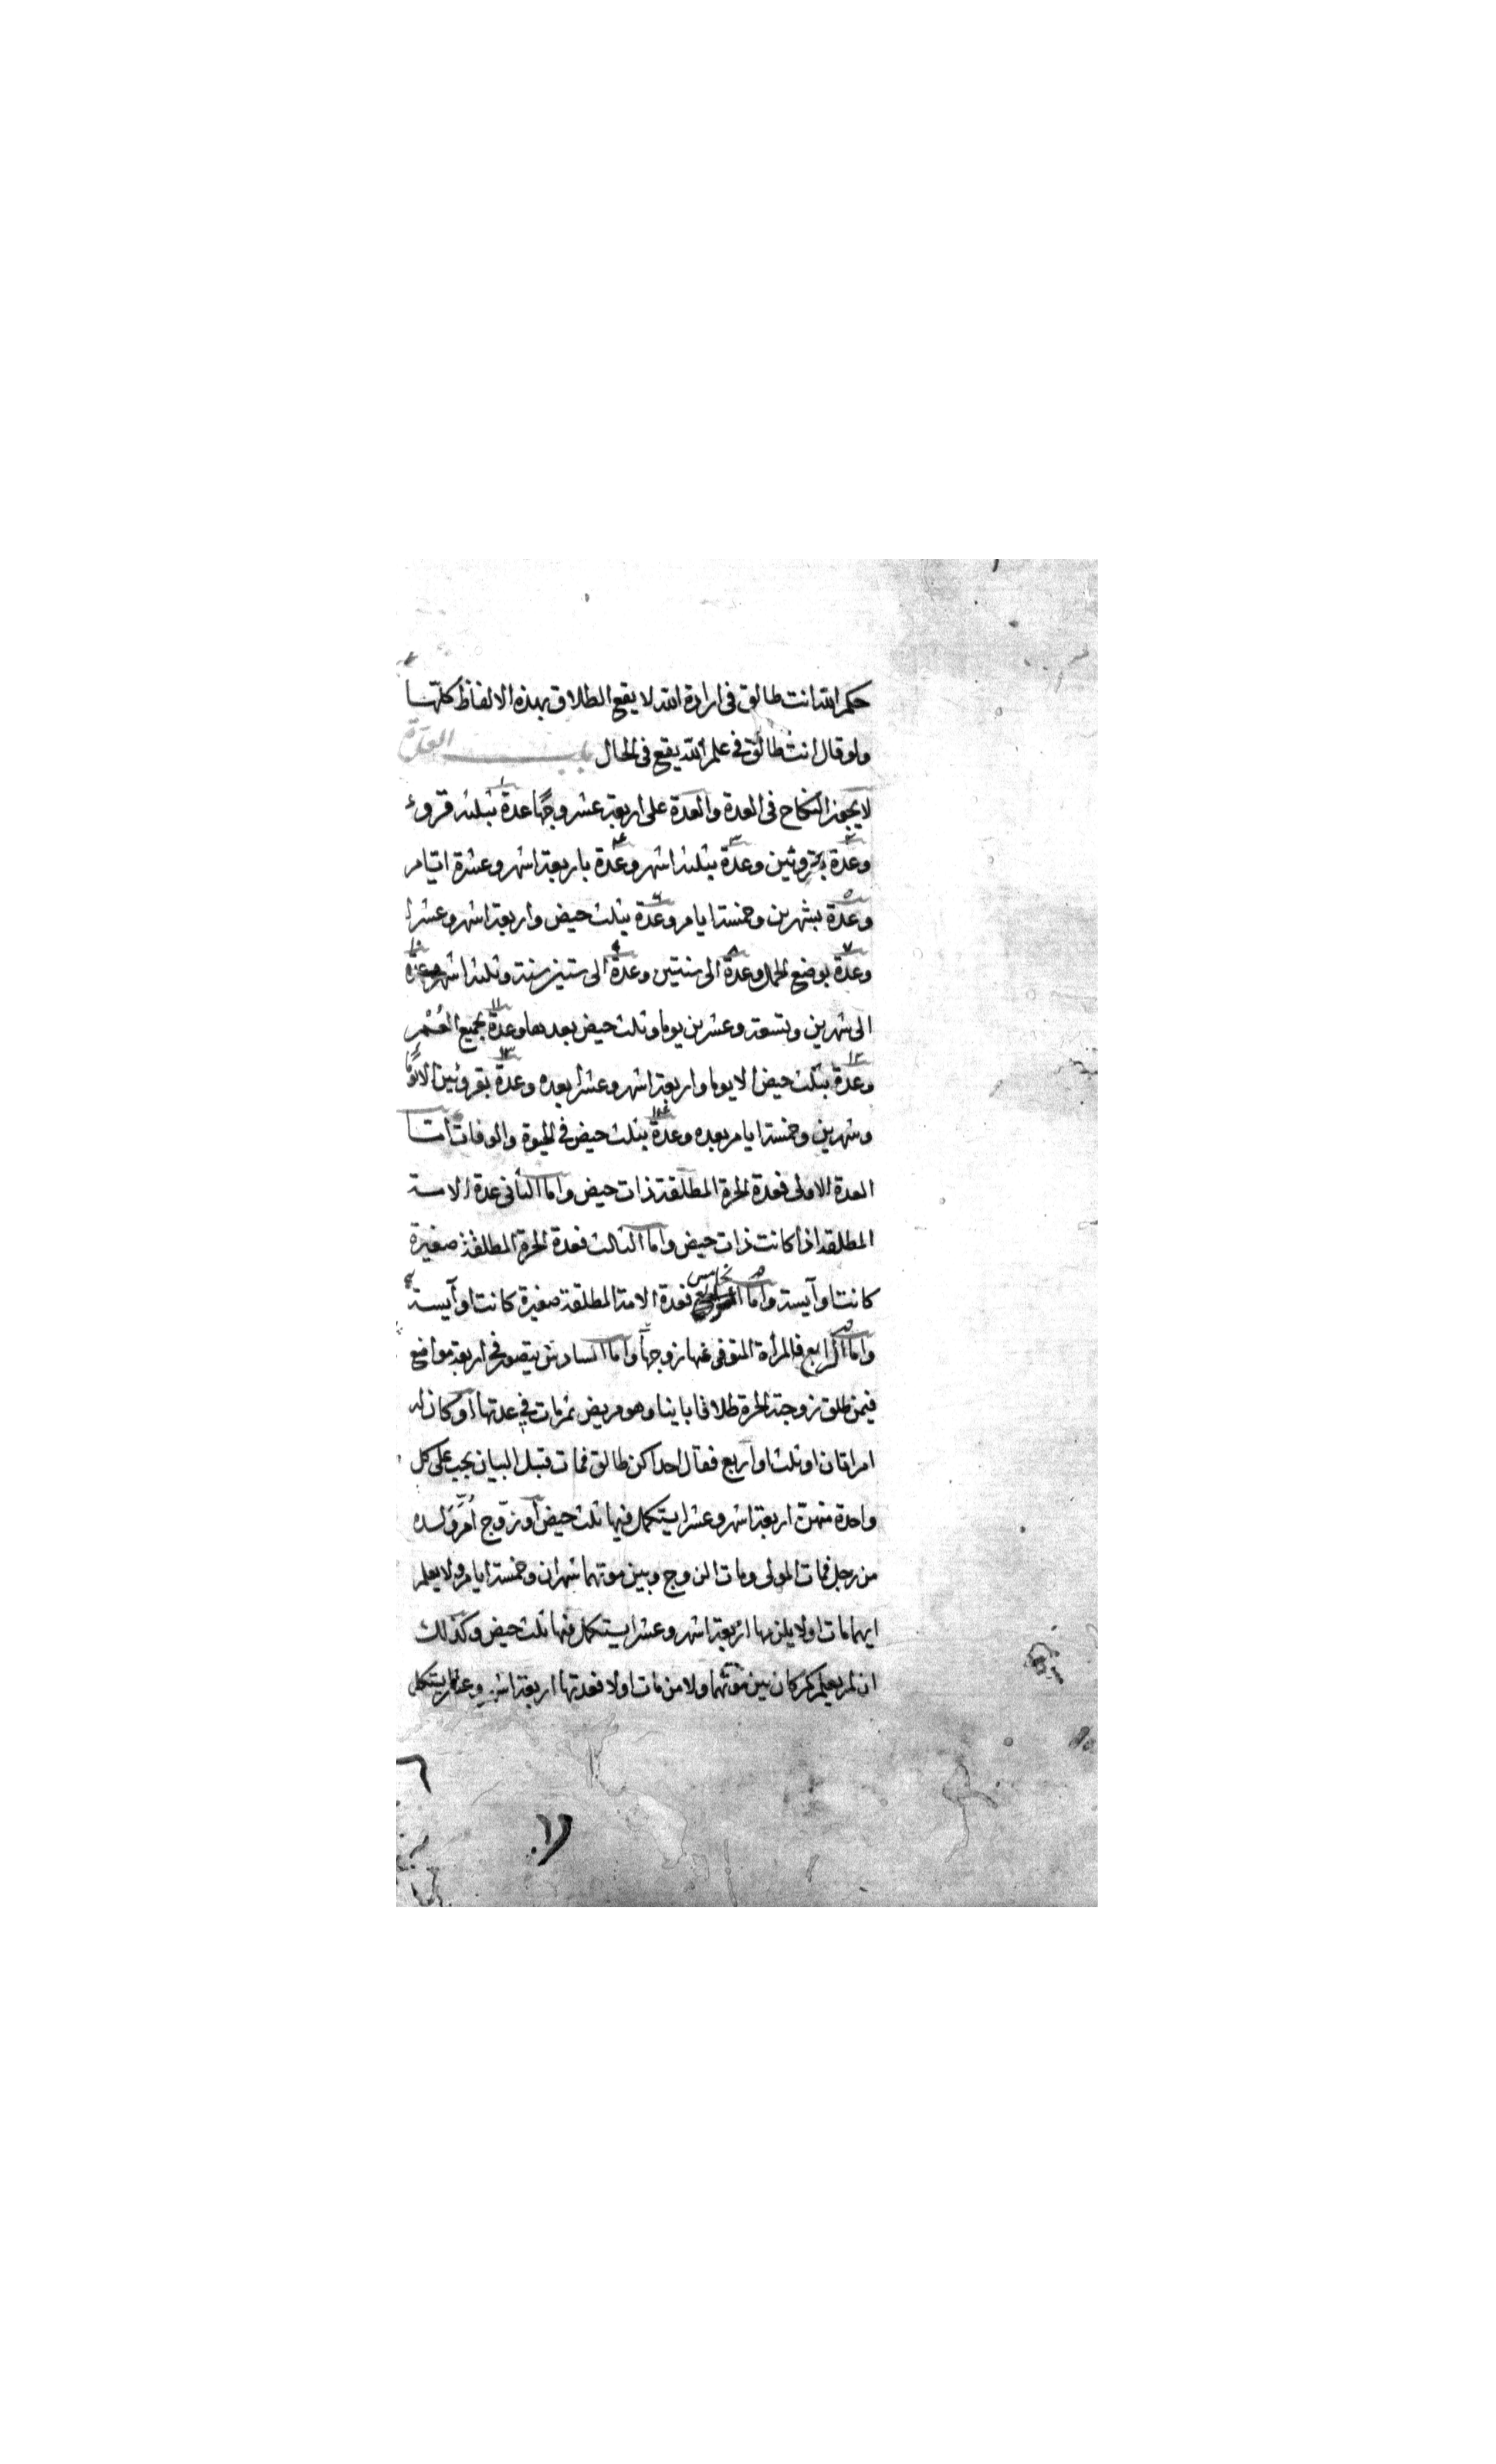 حكم الله انت طالق فى ارادة الله لا يقع الطلاق بهذه الالفاظ كلّها
ولو قال انت طالق فى علم الله يقع فى الحال باب العدّة
لا يجوز النكاح فى العدة والعدة على اربعة عشر وجهًا عدة ١ بثلثه قروء
وعدة ٢ بقروئين وعدة ٣ بثلثه اشهر وعدة ۴ باربعة اشهر وعشرة ايّام
وعدة ٥ بشهرين وخمسة ايام وعدة ٦ بثلث حيض واربعة اشهر وعشرا
وعدة ٧ بوضع الحمل وعدة ٨ الى سنتين وعدة ٩ الى ستين سنة وثلثه اشهر وعدة ١٠
الى شهرين وتسعة وعشرين يوما وثلث حيض بعدها وعدة ١١ بجميع العُمْر
وعدة ١٢ بثلث حيض الا يوما واربعة اشهر وعشرا بعده وعدة ١٣ بقروئين الا يومًا
وشهرين وخمسة ايام بعده وعدة ١۴ بثلث حيض فى الحيوة والوفات امّا
العدة الاولى فعدة الحرة المطلقة ذات حيض واما الثانى عدة الامة
المطلقة اذا كانت ذات حيض واما الثالث فعدة الحرة المطلقة صغيرة
كانت او آيسة واما الخامس فعدة الامة المطلقة صغيرة كانت او آيسة
واما الرابع فالمرأة المتوفى عنها زوجها واما السادس يتصور فى اربعة مواضع
فيمن طلق زوجته الحرة طلاقا باينا وهو مريض ثم مات فى عدتها او كان له
امراتان او ثلث او اربع فقال احداكن طالق فمات قبل البيان يجب على كل
واحدة منهنّ اربعة اشهر وعشرا يستكمل فيها ثلث حيض او زوّج اُمّ ولده
من رجل فمات المولى ومات الزوج وبين موتهما شهران وخمسة ايام ولا يعلم
ايهما مات اولا يلزمها اربعة اشهر وعشرا يستكمل فيها ثلث حيض وكذلك
ان لم يعلم كم كان بين موتهما ولا من مات اولا فعدتها اربعة اشهر وعشرا يستكمل